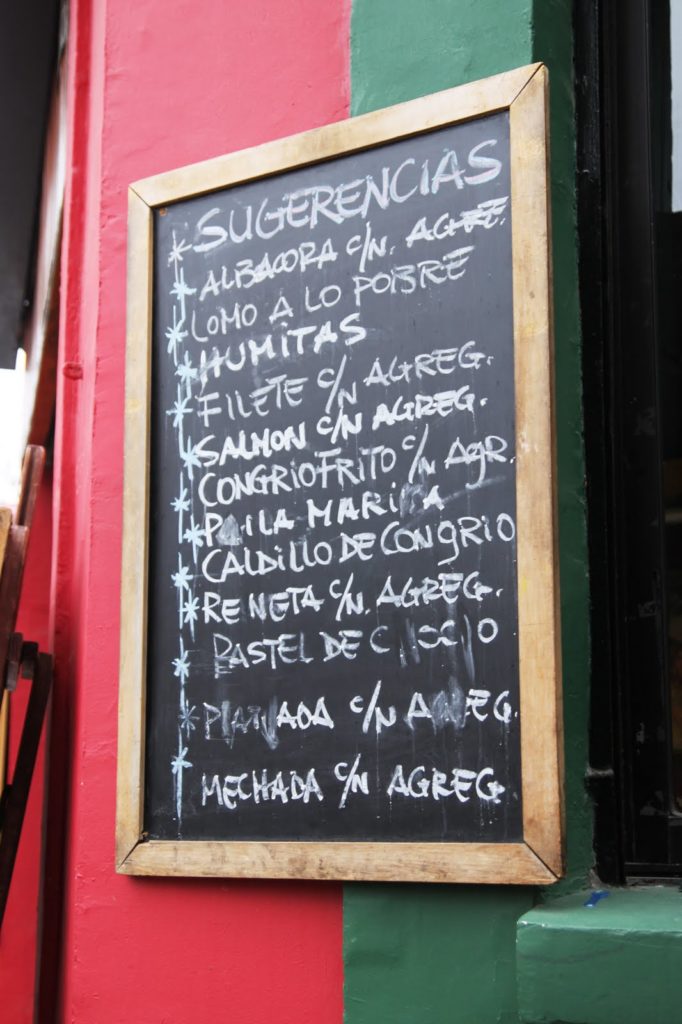 SUGERENCIAS
ALBACORA C/N. AGRE.
LOMO A LO POBRE
HUMITAS
FILETE C/N AGREG.
SALMON C/N AGREG.
CONGRIO FRITO C/N AGR.
PAILA MARINA
CALDILLO DE CONGRIO
REINETA C/N. AGREG.
PASTEL DE
C/N AGREG.
MECHADA C/N AGREG.